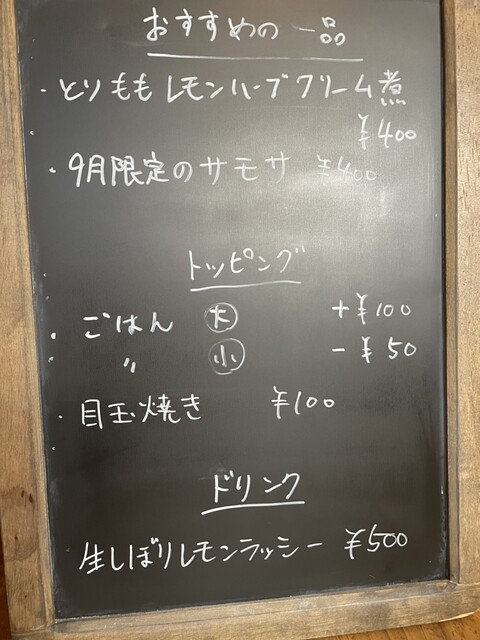 おすすめの一品
・とりももレモンハーブクリーム煮
¥400
・9月限定のサモサ ¥400
トッピング
・ごはん 大 +¥100
・〃 小 -¥50
・目玉焼き ¥100
ドリンク
生しぼりレモンラッシー ¥500